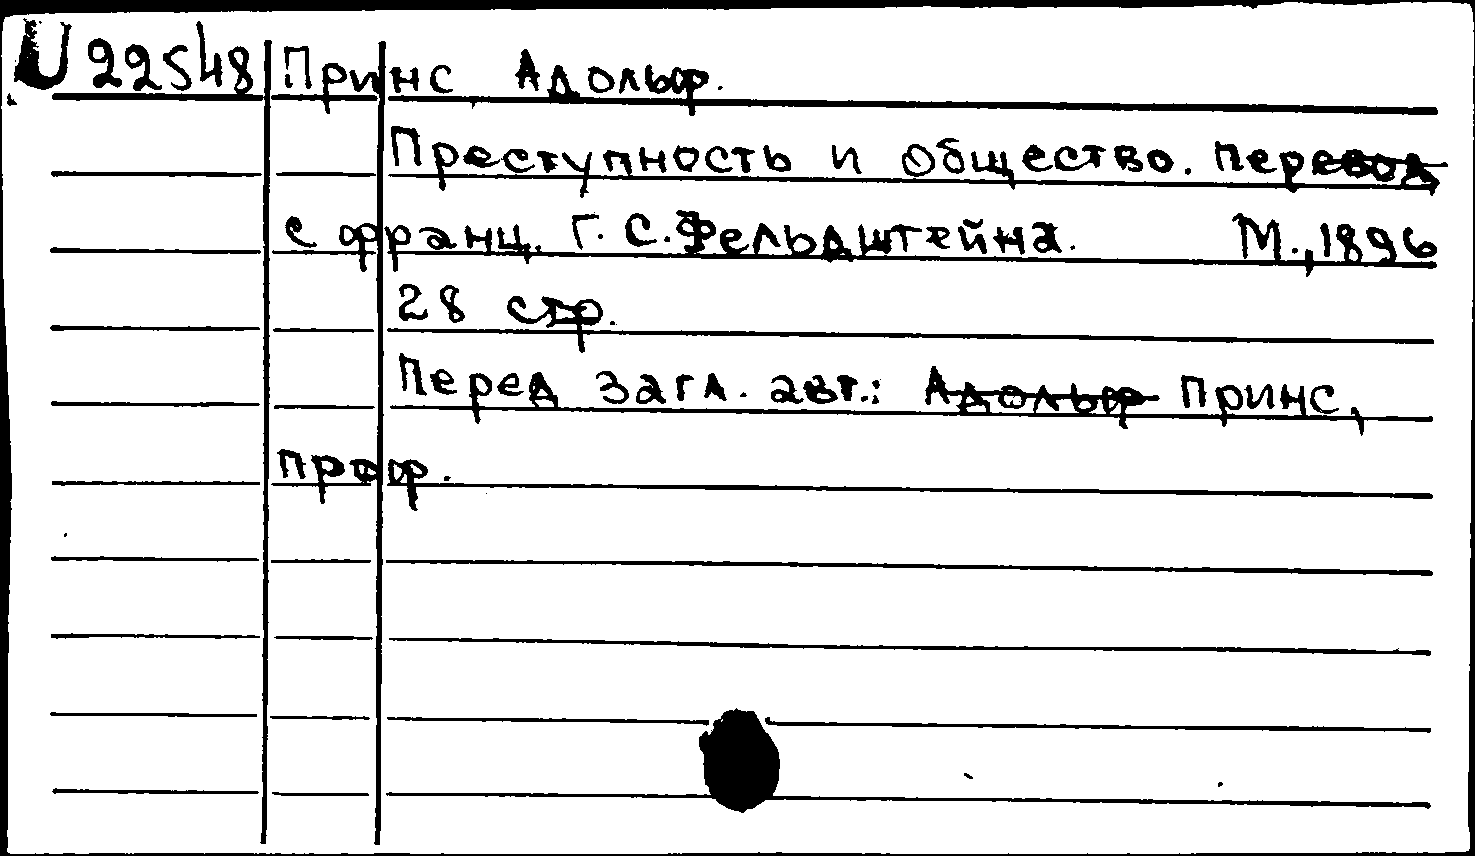 U 22548 Принс, Адольф.
Преступность и общество. Перевод
с франц. Г. С. Фельдштейна. М., 1896
28 стр.
Перед загл. авт.: Адольф Принс,
проф.